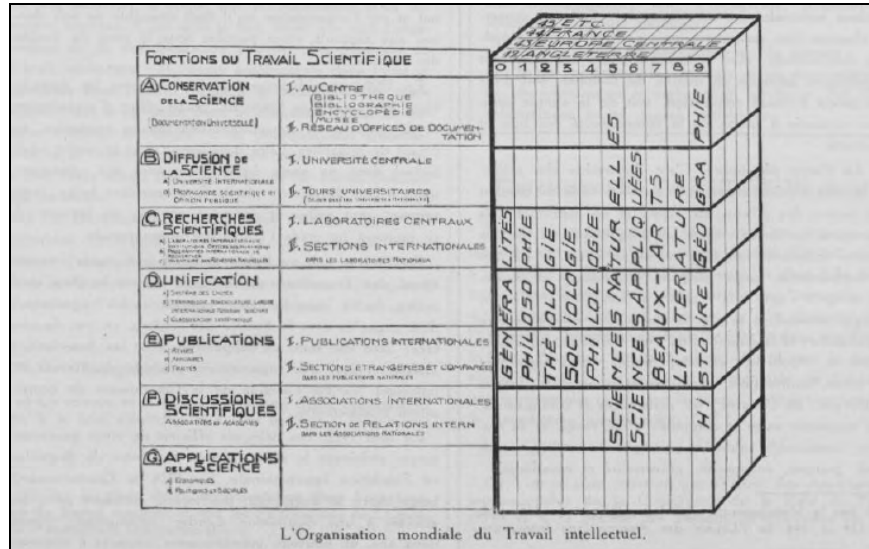 45 ETC.
44 FRANCE
43 EUROPE CENTRALE
42 ANGLETERRE
0 1 2 3 4 5 6 7 8 9
FONCTIONS DU TRAVAIL SCIENTIFIQUE
A CONSERVATION
DE LA SCIENCE
(DOCUMENTATION UNIVERSELLE)
I. AU CENTRE
BIBLIOTHÈQUE
BIBLIOGRAPHIE
ENCYCLOPÉDIE
MUSÉE
II. RÉSEAU D'OFFICES DE DOCUMEN-
TATION
B DIFFUSION DE
LA SCIENCE
a) UNIVERSITÉ INTERNATIONALE
b) PROPAGANDE SCIENTIFIQUE ET
OPINION PUBLIQUE
I. UNIVERSITÉ CENTRALE
II. TOURS UNIVERSITAIRES
C RECHERCHES
SCIENTIFIQUES
I. LABORATOIRES CENTRAUX
II. SECTIONS INTERNATIONALES
DANS LES LABORATOIRES NATIONAUX
D UNIFICATION
a) SYSTÈME DES UNITÉS
E PUBLICATIONS
a) REVUES
b) ANNUAIRES
c) TRAITÉS
I. PUBLICATIONS INTERNATIONALES
II. SECTIONS ETRANGERES ET COMPARÉES
DANS LES PUBLICATIONS NATIONALES
F DISCUSSIONS
SCIENTIFIQUES
ASSOCIATIONS ET ACADÉMIES
I. ASSOCIATIONS INTERNATIONALES
II. SECTION DE RELATIONS INTERN
DANS LES ASSOCIATIONS NATIONALES
G APPLICATIONS
DE LA SCIENCE
a) ECONOMIQUES
b) POLITIQUES ET SOCIALES
GÉNÉRALITÉS
PHILOSOPHIE
THÉOLOGIE
SOCIOLOGIE
PHILOLOGIE
SCIENCES NATURELLES
SCIENCES APPLIQUÉES
BEAUX-ARTS
LITTERATURE
HISTOIRE GÉOGRAPHIE
L'Organisation mondiale du Travail intellectuel.